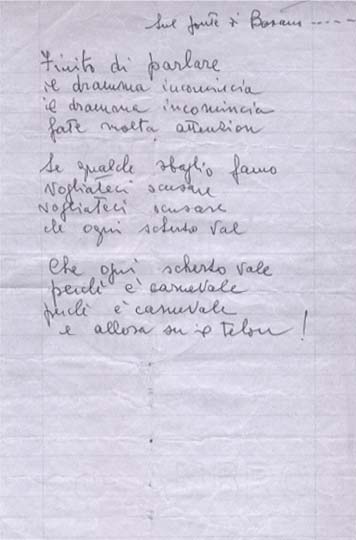 Sul ponte di Bassano -----
Finito di parlare
il dramma incomincia
il dramma incomincia
fate molta attension
Se qualche sbaglio famo
Vogliateci scusare
Vogliateci scusare
chè ogni scherso val
Che ogni scherso vale
perchè è carnevale
perchè è carnevale
e allora su il telon!